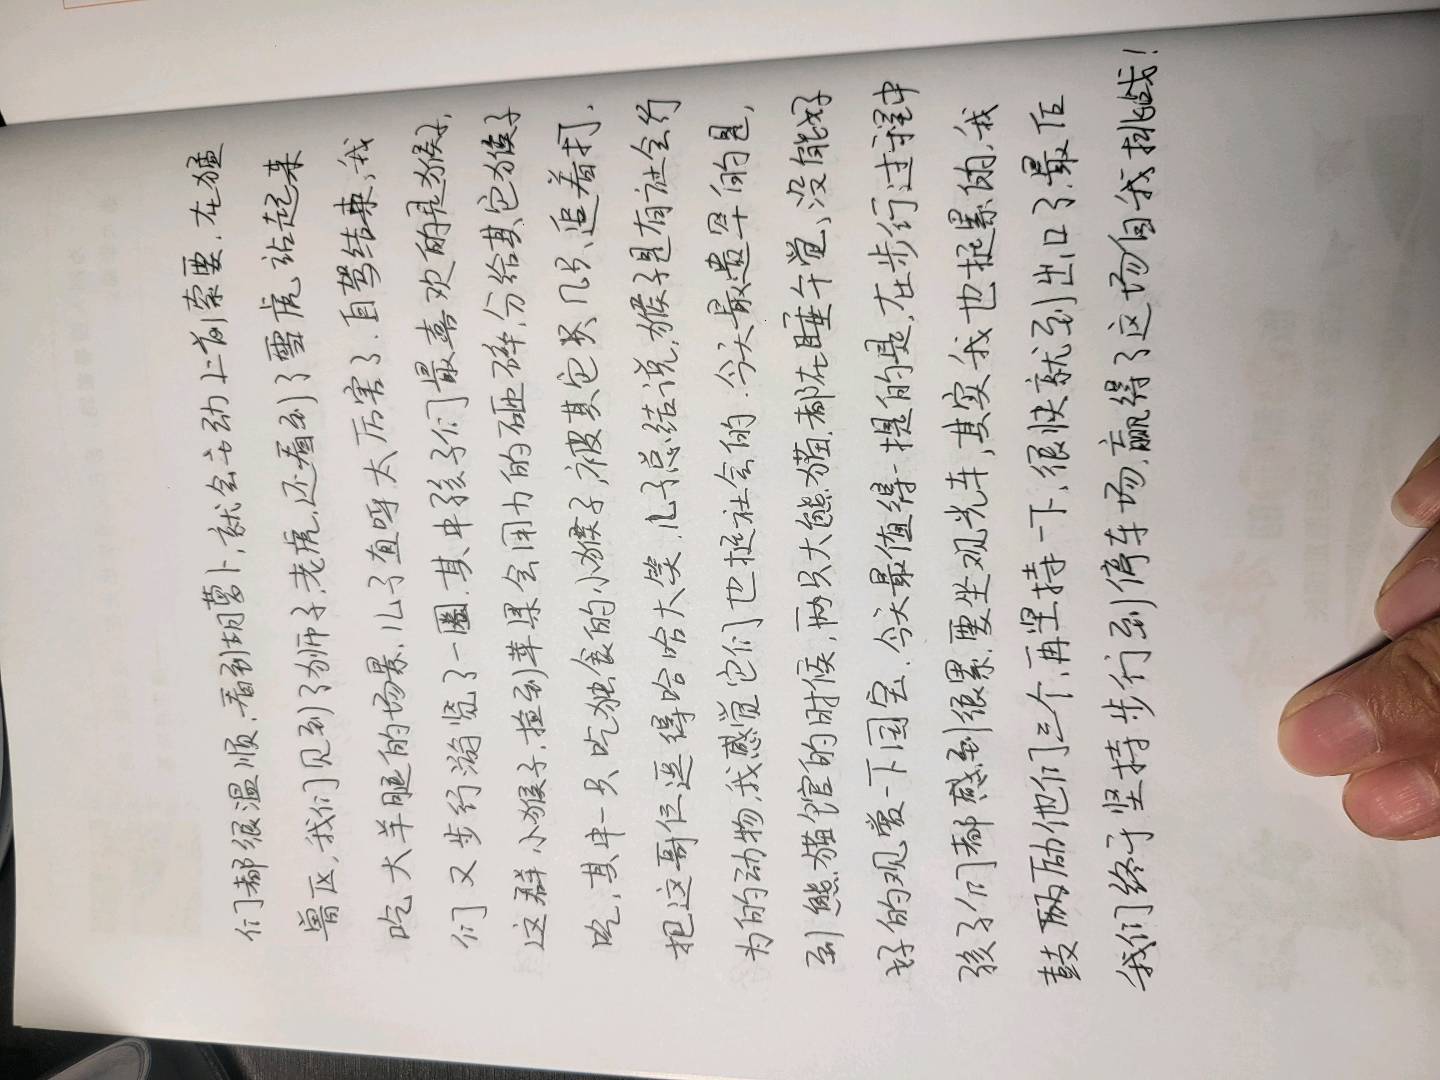 们都很温顺，看到胡萝卜，就会主动上前索要，在猛
兽区，我们见到了狮子，老虎，还看到了雪虎站起来
吃大羊腿的场景，儿子直呼太厉害了，自驾结束，我
们又步行游览了一圈，其中孩子们最喜欢的是猴子，
这群小猴子，捡到苹果会用力的砸碎，分给其它猴子
吃，其中一只吃独食的小猴子，被其它只几只，追着打，
把这哥位逗得哈哈大笑，儿子总结说，猴子是有社会行
为的动物，我感觉它们也挺社会的，今天最遗早的是，
到熊猫馆的时候，两只大熊猫，都在睡午觉，没能好
好的观赏一下国宝，今天最值得一提的是，在步行过程中
孩子们都感到很累，要坐观光车，其实我也挺累的，我
鼓励他们三个，再坚持一下，很快就到出口了，最后
我们终于坚持步行到停车场，赢得了这场自我挑战！